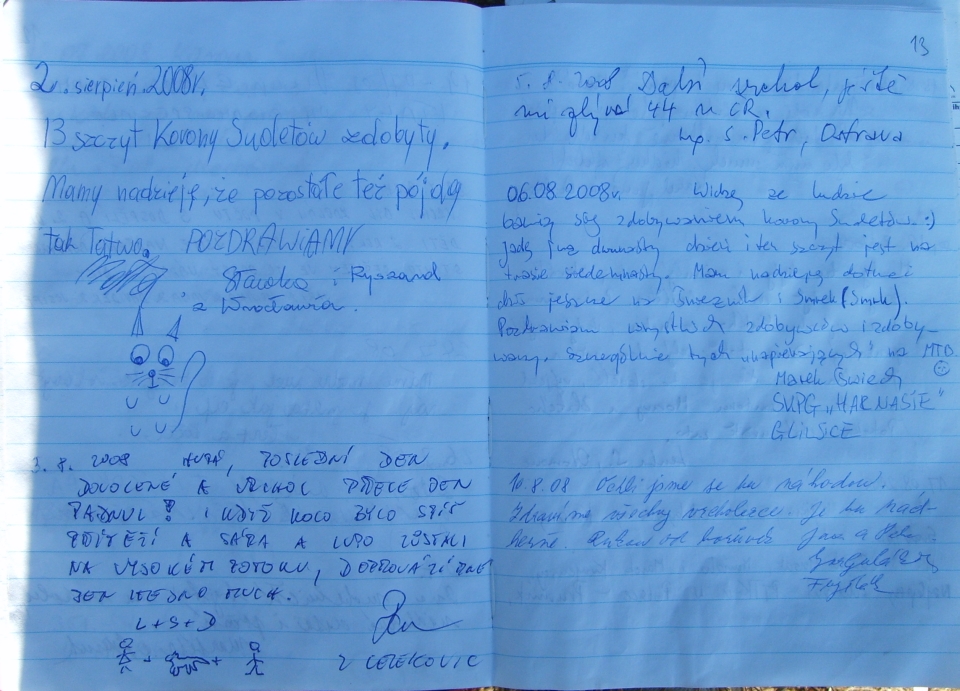 2. sierpień. 2008r.
13 szczyt Korony Sudetów zdobyty.
Mamy nadzieję, że pozostałe też pójdą
tak łatwo. POZDRAWIAMY
Sławka i Ryszard
z Wrocławia.
3. 8. 2008 POSLEDNÍ DEN
DOVOLENÉ A VRCHOL PŘECE JEN
PADNUL! I KDYŽ KOLO BYLO SPÍŠ
PŘÍTĚŽÍ A SÁRA A LUPO ZŮSTALI
NA VYSOKÉM POTOKU, DOPROVÁZÍ MNE
JEN HEJNO MUCH.
L+S+D
Z
13
5. 8. 2008 Další vrchol, ještě
mi zbývá 44 v ČR.
S. Petr, Ostrava
06.08.2008r. Widzę że ludzie
bawią się zdobywaniem korony Sudetów :)
Jadę już dzień i ten szczyt jest na
trasie siedemnasty. Mam nadzieję dotrzeć
dziś jeszcze na Śnieżnik i Smrek (Smrk).
Pozdrawiam wszystkich zdobywców i zdoby-
wczynie, szczególnie tych "napierających" na MTB
Marek Świech
SKPG "HARNASIE"
GLIWICE
10.8.08 jsme se tu náhodou.
Zdravíme všechny vrcholovce. Je tu nád-
herně. od borůvek Jana a